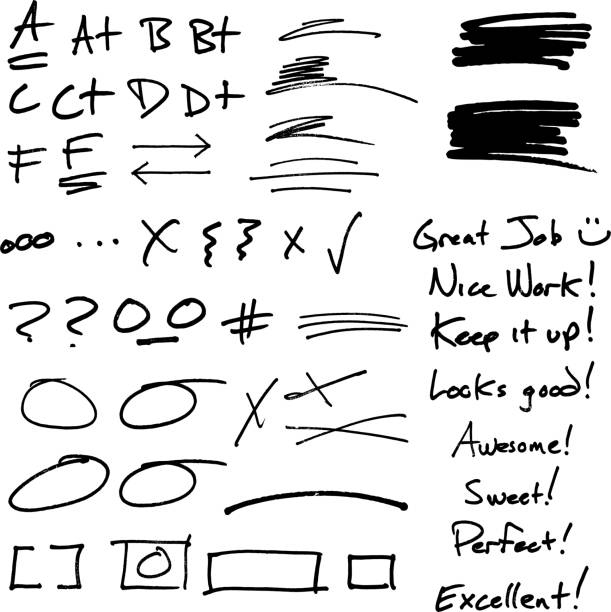 A A+ B B+
C C+ D D+
F F
ooo ... X { } x √
? ? O O #
Great Job ☺
Nice Work!
Keep it up!
Looks good!
Awesome!
Sweet!
Perfect!
Excellent!